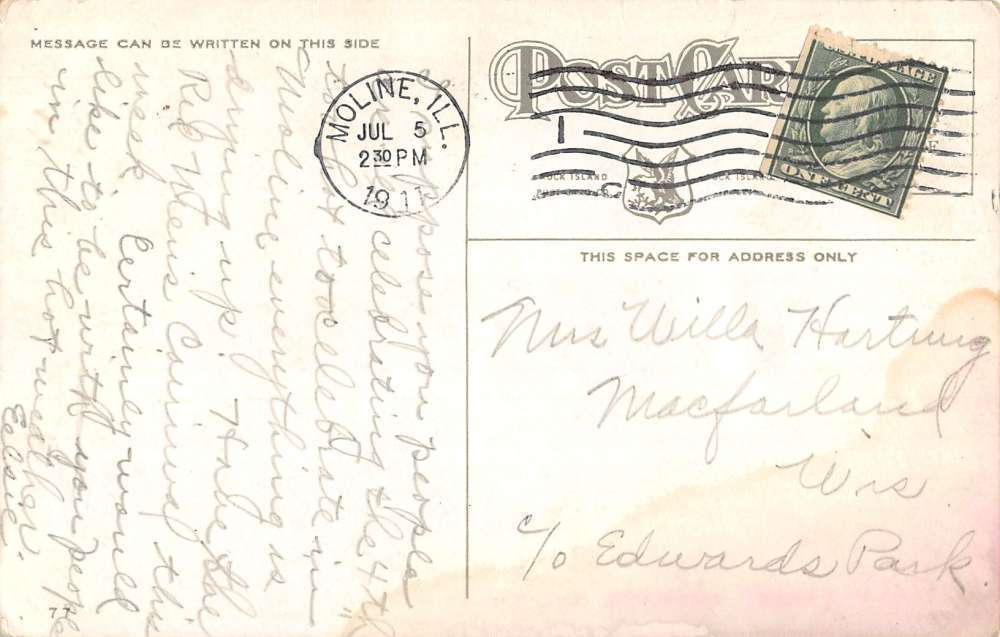 MESSAGE CAN BE WRITTEN ON THIS SIDE
POST CARD
MOLINE, ILL.
JUL 5
2 30 PM
1911
POSTAGE
ONE CENT
ROCK ISLAND
ROCK ISLAND
THIS SPACE FOR ADDRESS ONLY
suppose you people
celebrating the 4th
to celebrate in
Moline everything is
drying up. Had the
this
week Certainly would
like to be with you people
in this hot weather.
Mrs Willa Hartung
Macfarland
Wis
c/o Edwards Park
77